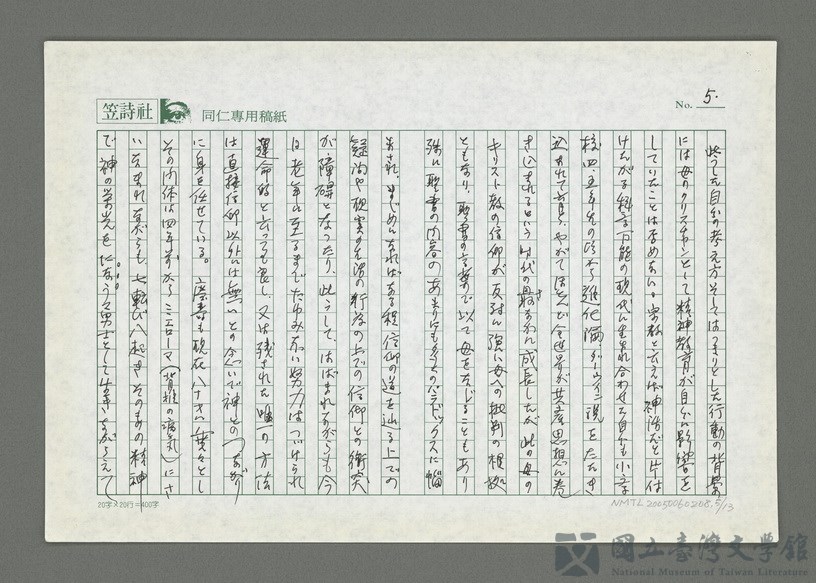 笠詩社
同仁專用稿紙
No. 5.
此うした自分の考え方そしてはっきりとした行動の背景
には母のクリスチャンとして精神教育が自分に影響を
していたことは否めない。宗教と云えば神話だと片付
けたがる科学万能の現代に生まれ合わせた自分も小学
校四、五年生の頃から進化論ダーウィン説をたたき
込まれて育ち、やがてほとんど全世界が共産思想に巻
き込まれるという時代の最さ中に成長したが、此の母の
キリスト教の信仰が反対に強い母への批判の根拠
ともなり、聖書の言葉で以て母をなじることもあり
殊に聖書の内容のあまりにも多くのパラドックスに悩
まされ、まじめになればなる程信仰の道を辿る上での
疑問や現実の生活の行為の上での信仰との衝突
が障碍となったり、此うして、はばまれながらも今
日老年に至るまでたゆみない努力はつづけられ
運命的と云っても良し、又は残された唯一の方法
は直接信仰以外には無いとの念いで神とのつながり
に身を任せている。 母も現在八十才、 々とし
その肉体は四年前からミエローマ（背椎の病気）にさ
いなまれながらも、七転び八起きそのものの精神
で神の栄光をになう勇士として生きながらえて
20字×20行=400字
NMTL20050060208.5/13
國立臺灣文學館
National Museum of Taiwan Literature